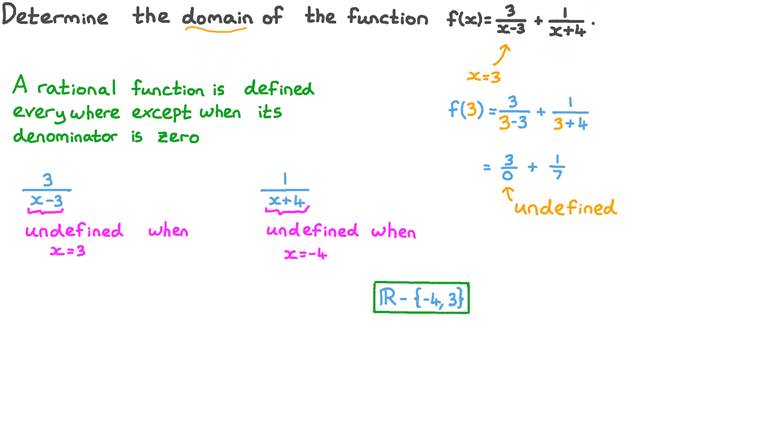 Determine the domain of the function f(x)=3/(x-3) + 1/(x+4).
x=3
A rational function is defined
everywhere except when its
denominator is zero
f(3)=3/(3-3) + 1/(3+4)
= 3/0 + 1/7
undefined
3/(x-3)
1/(x+4)
undefined when
x=3
undefined when
x=-4
ℝ - {-4, 3}